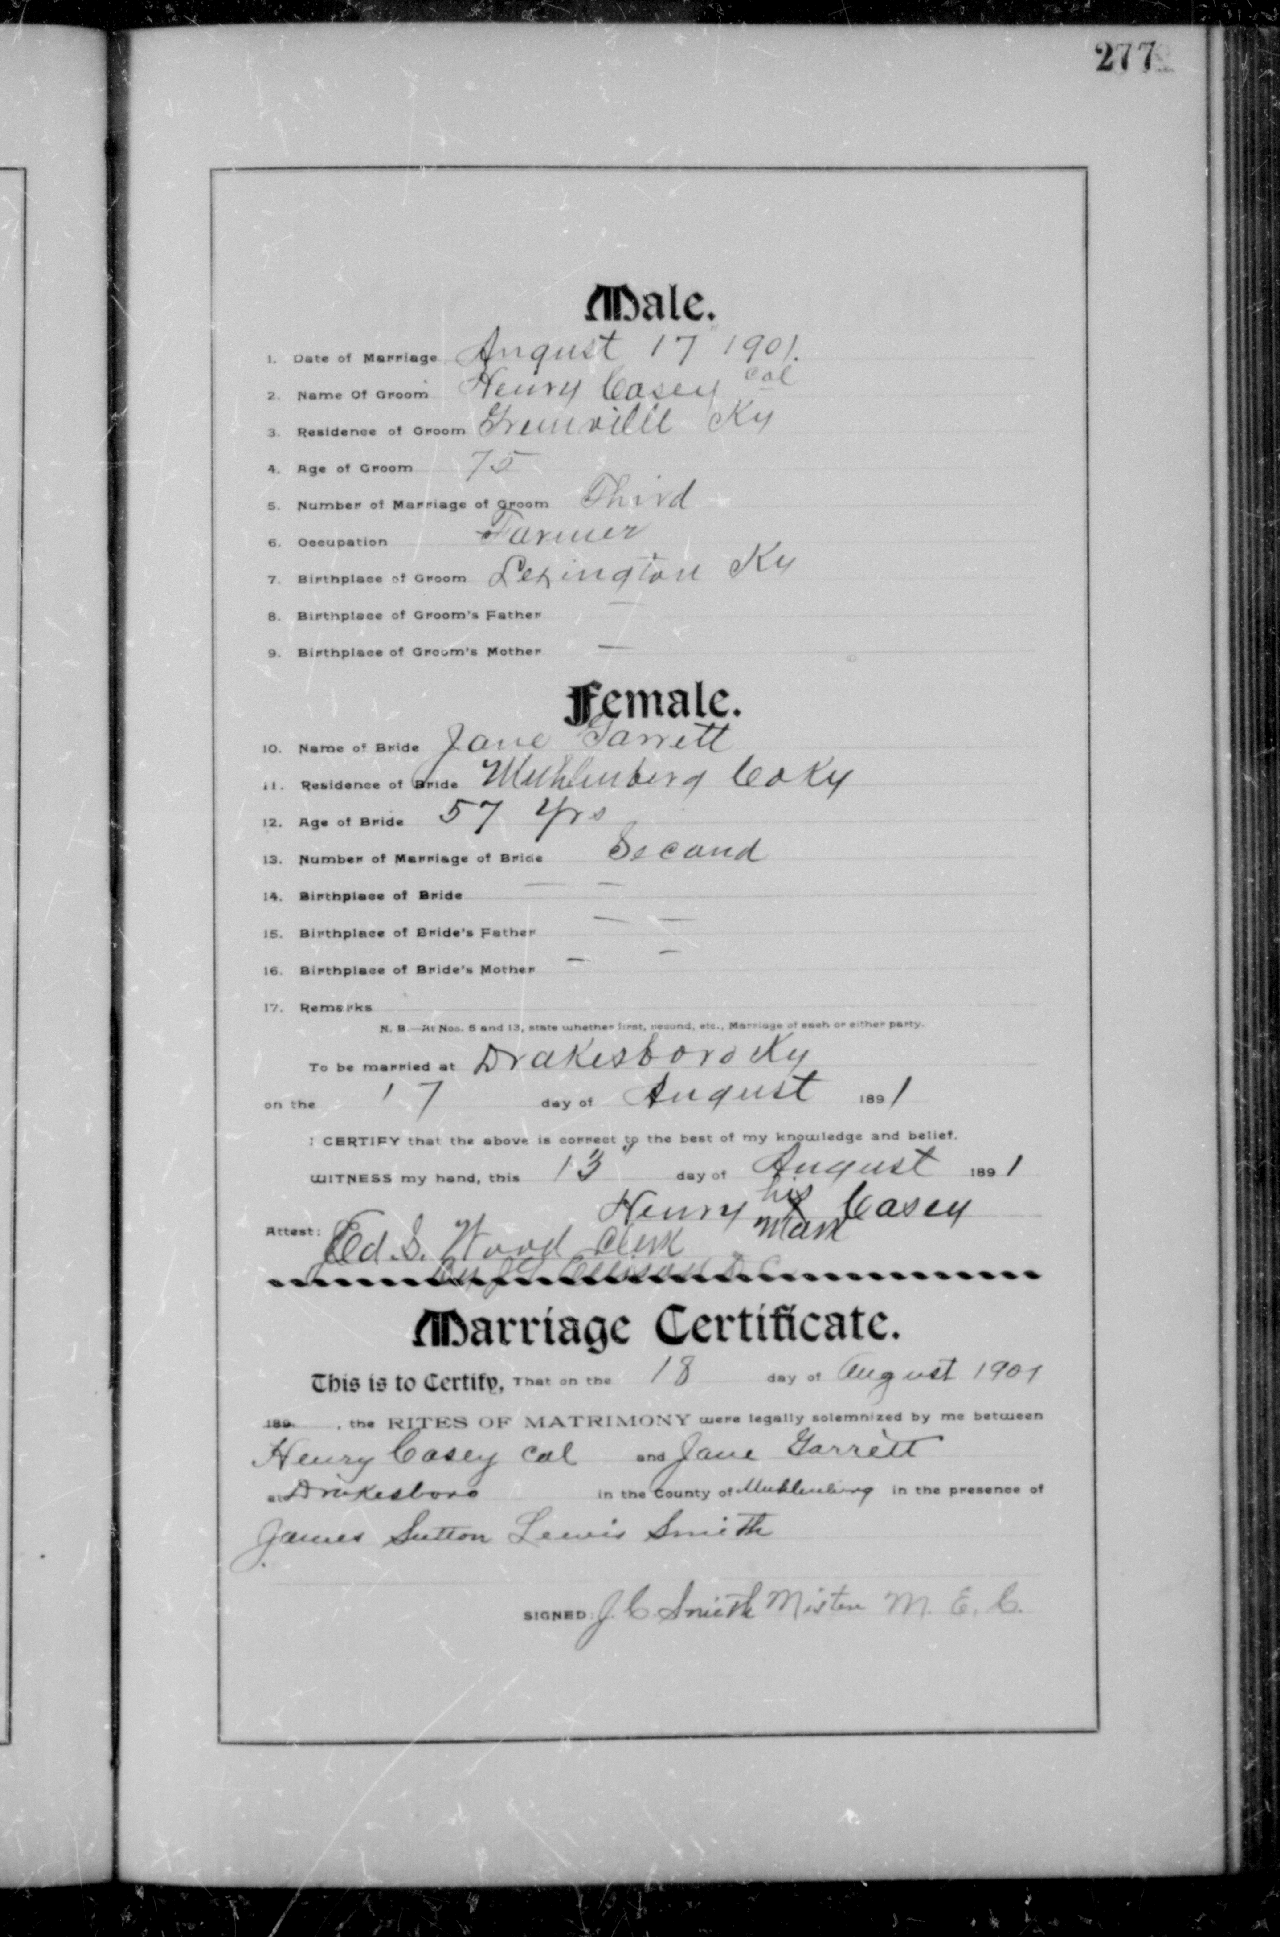 277
Male.
1. Date of Marriage August 17" 1901.
2. Name Of Groom Henry Casey col
3. Residence of Groom Greenville Ky
4. Age of Groom 75
5. Number of Marriage of Groom Third
6. Occupation Farmer
7. Birthplace of Groom Lexington Ky
8. Birthplace of Groom's Father —
9. Birthplace of Groom's Mother —
Female.
10. Name of Bride Jane Garrett
11. Residence of Bride Muhlenberg Co Ky
12. Age of Bride 57 Yrs
13. Number of Marriage of Bride Second
14. Birthplace of Bride — —
15. Birthplace of Bride's Father — —
16. Birthplace of Bride's Mother — —
17. Remarks
N. B.—At Nos. 5 and 13, state whether first, second, etc., Marriage of each or either party.
To be married at Drakesboro Ky
on the 17 day of August 1891
I CERTIFY that the above is correct to the best of my knowledge and belief.
WITNESS my hand, this 13" day of August 1891
Henry his X mark Casey
Attest: Ed. S. Wood Clerk
By D.C.
Marriage Certificate.
This is to Certify, That on the 18 day of August 1901
189 , the RITES OF MATRIMONY were legally solemnized by me between
Henry Casey col and Jane Garrett
at Drakesboro in the County of Muhlenberg in the presence of
James Sutton Lewis Smith
SIGNED: J. C Smith Mister M. E. C.